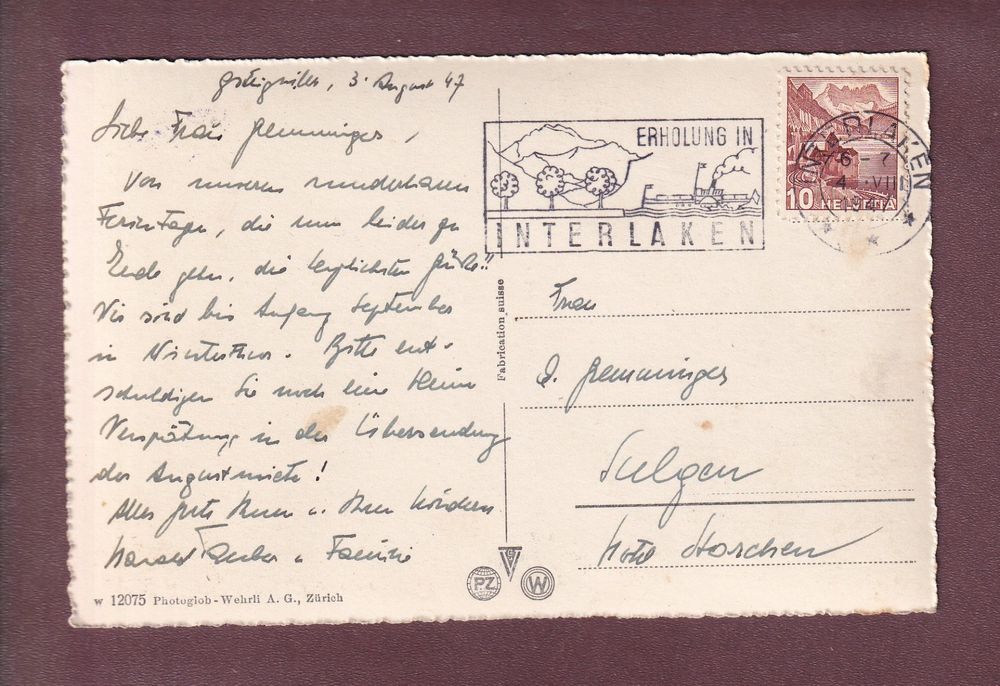 Goldswil, 3. August 47
Liebe Frau Gemminger,
Von unseren wunderbaren
Ferientagen, die nun leider zu
Ende gehn, die herzlichsten Grüße!!
Wir sind bis Anfang September
in Winterthur. Bitte ent-
schuldigen Sie noch eine kleine
Verspätung in der Übersendung
der Augustmiete!
Alles Gute Ihnen u. Ihren Kindern
Harald u. Familie
w 12075 Photoglob-Wehrli A. G., Zürich
Fabrication suisse
ERHOLUNG IN
INTERLAKEN
INTERLAKEN
6-7
4. VIII
194
10 HELVETIA
Frau
Gemminger
Sulgen
Hotel Storchen
PZ
G
W